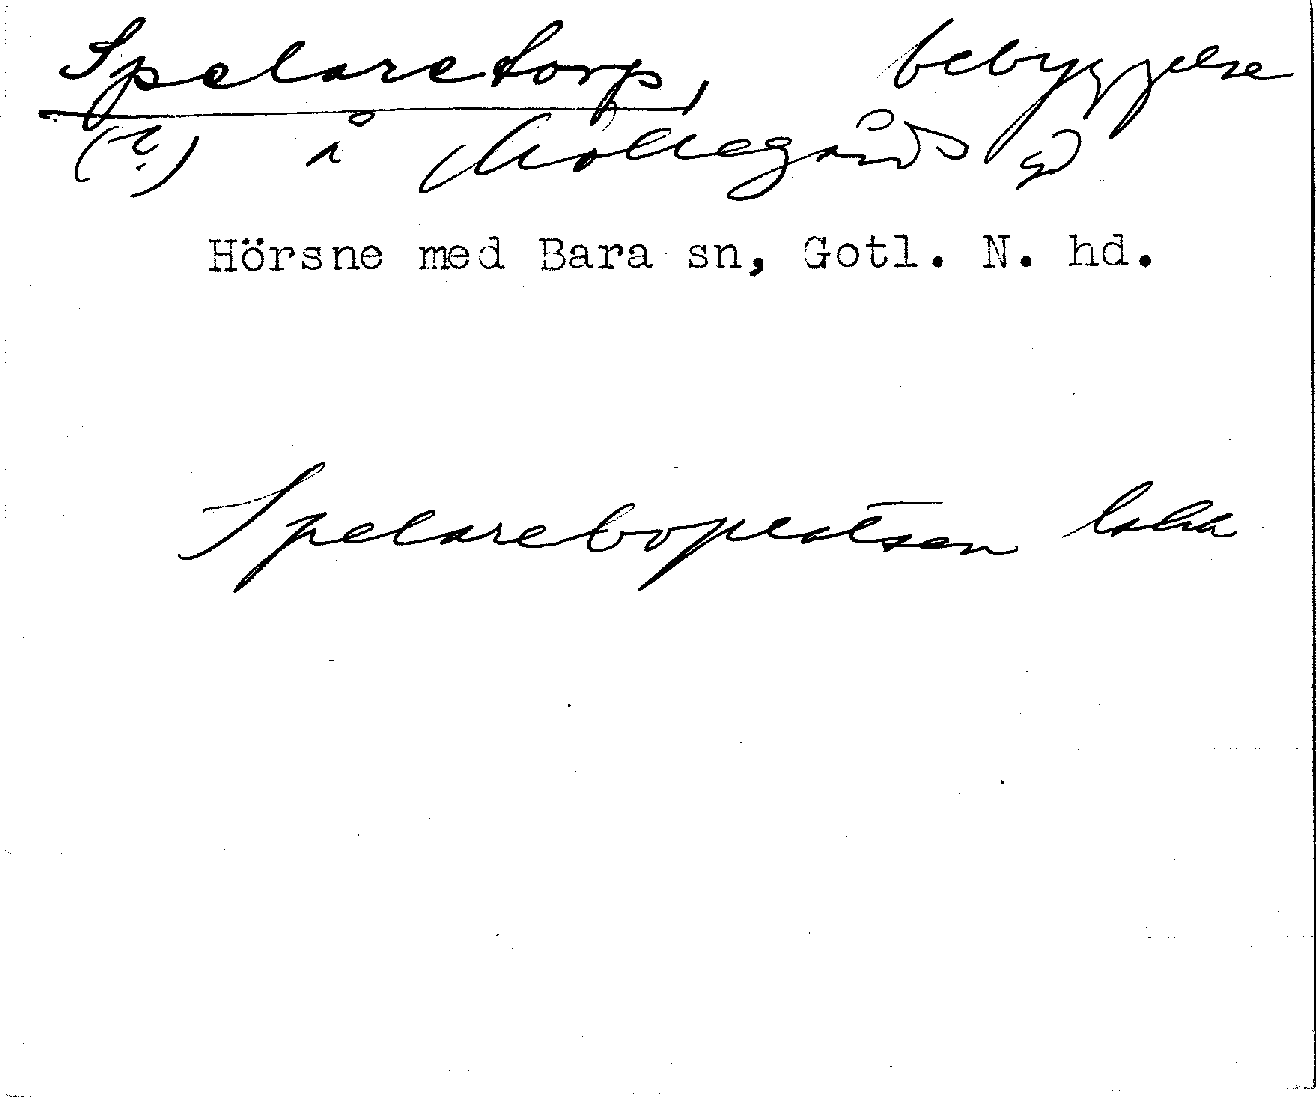 Spelaretorp, bebyggelse
(?) å Möllegårds
Hörsne med Bara sn, Gotl. N. hd.
Spelareboplatsen